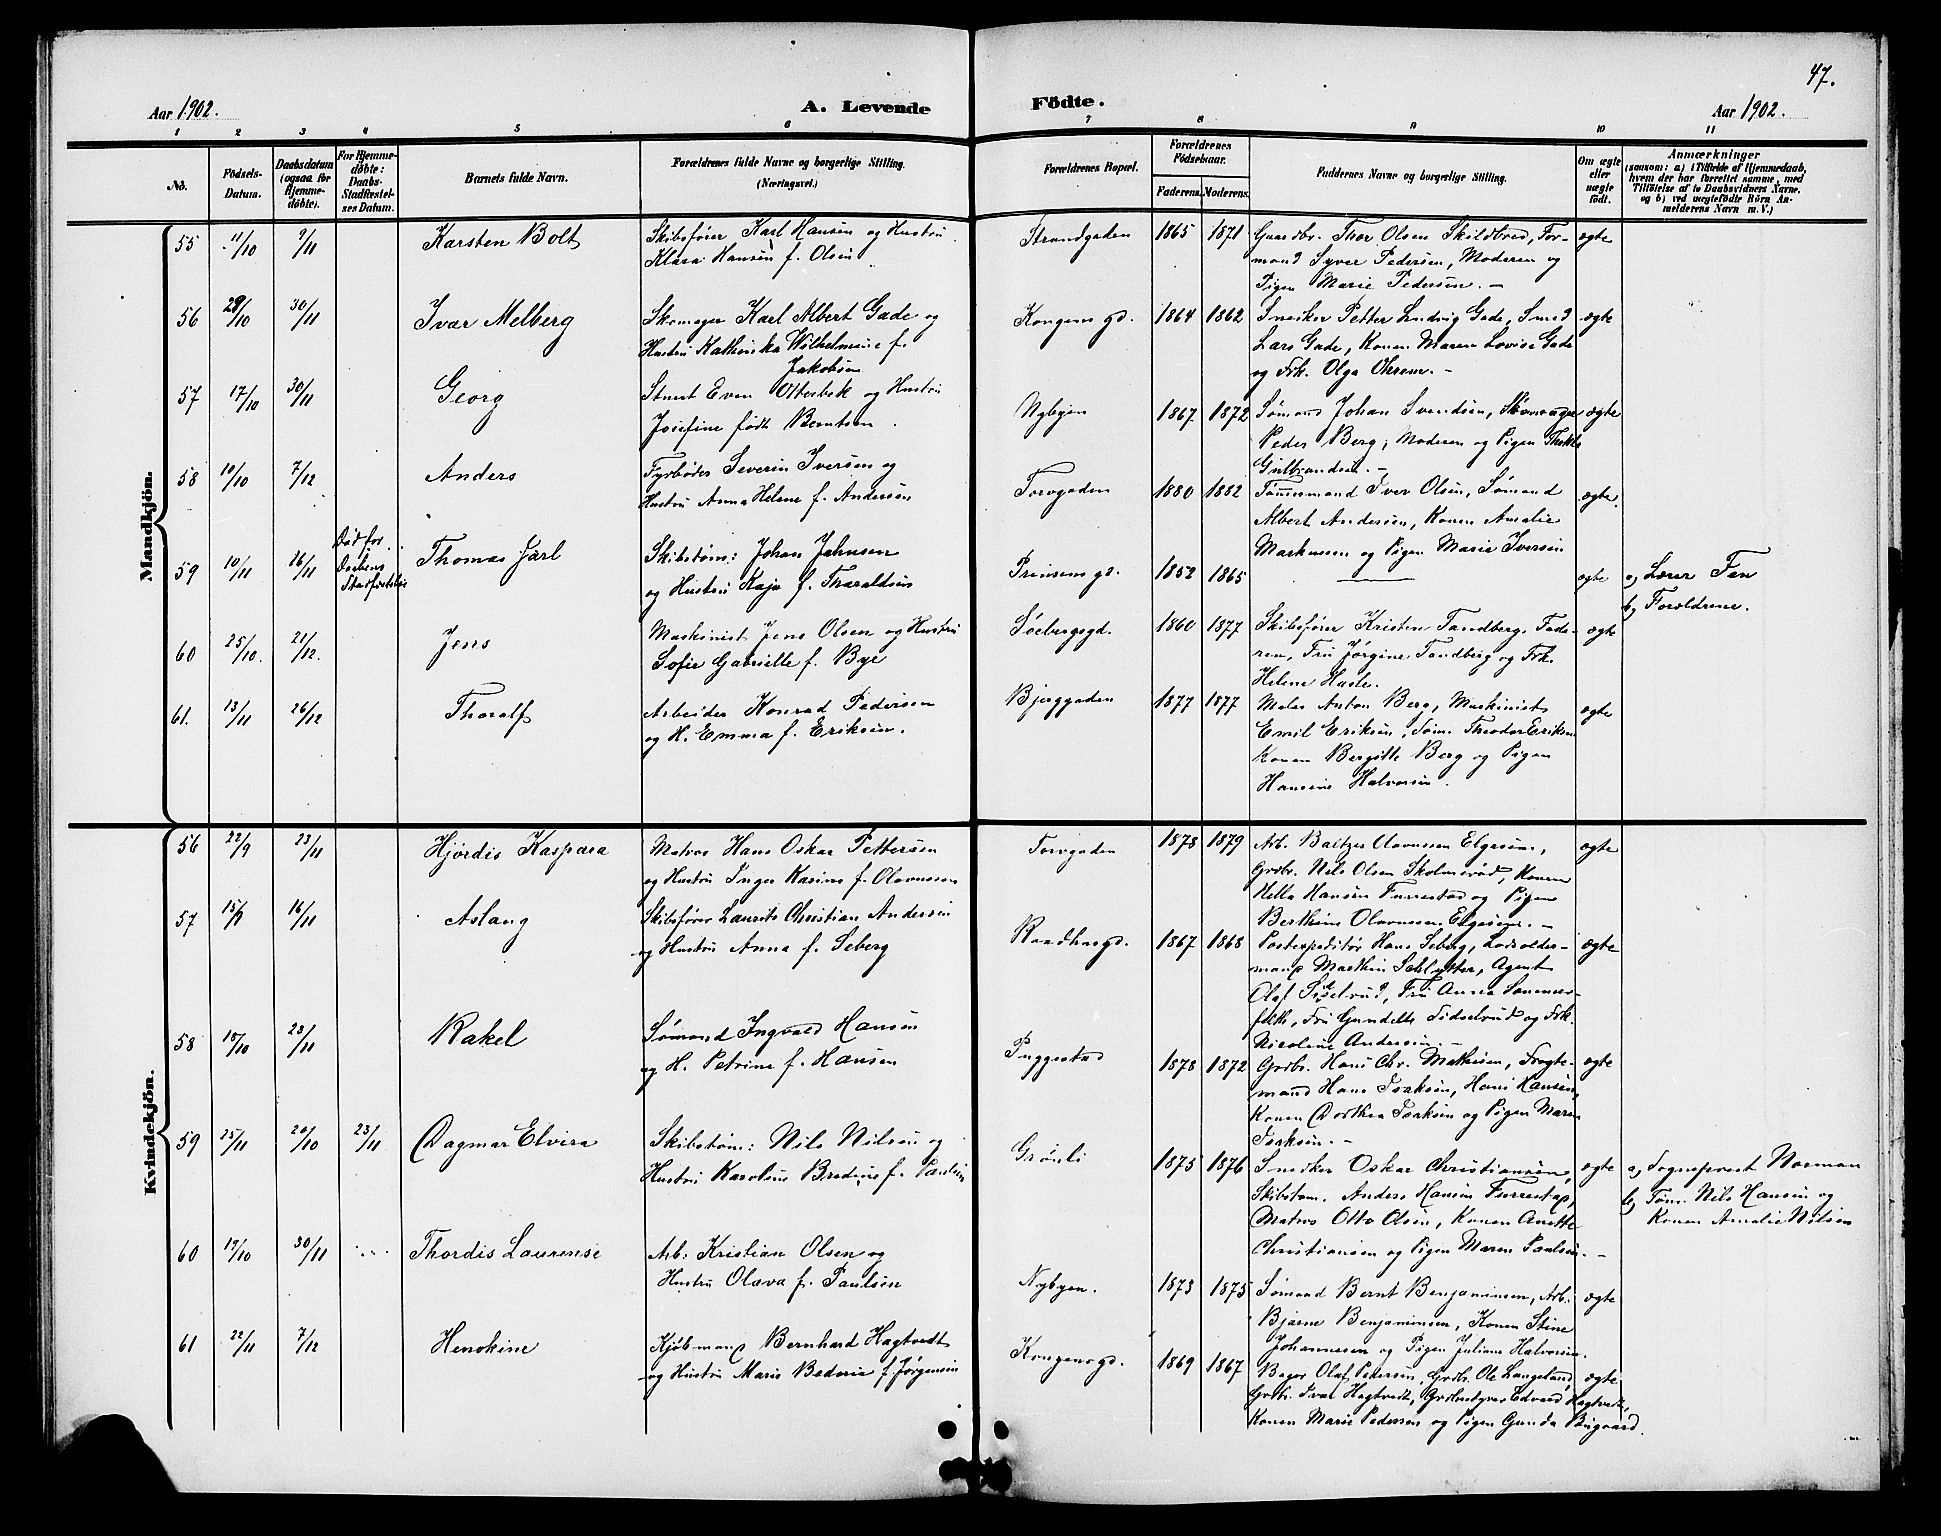 47.
Aar 1902. A. Levende Födte. Aar 1902.
1 2 3 4 5 6 7 8 9 10 11
No. Födsels-Datum. Daabsdatum (ogsaa for Hjemme-döbte). For Hjemme-döbte: Daabs-Stadfæstel-ses Datum. Barnets fulde Navn. Forældrenes fulde Navne og borgerlige Stilling. (Næringsvei.) Forældrenes Bopæl. Forældrenes Födselsaar. Faderens. Moderens. Faddernes Navne og borgerlige Stilling. Om ægte eller uægte födt. Anmærkninger (saasom: a) i Tilfælde af Hjemmedaab, hvem der har forrettet samme, med Tilföielse af to Daabsvidners Navne, og b) ved uægtefödte Börn An-melderens Navn m. V.)
Mandkjön.
55 11/10 9/11 Karsten Bolt Skibsfører Karl Hansen og Hustru Strandgaden 1865 1871 Gaardbr. Thor Olsen Skildbred, For- ægte
Klara Hansen f. Olsen mand Syver Pedersen, Moderen og
Pigen Marie Pedersen. –
56 29/10 30/11 Ivar Melberg Skomager Karl Albert Gade og Kongensgd. 1864 1862 Snedker Petter Ludvig Gade, Smed ægte
Hustru Kathinka Wilhelmine f. Lars Gade, Konen Maren Lovise Gade
Jakobsen og Frk. Olga Ohrem. –
57 17/10 30/11 Georg Stuert Even Otterbek og Hustru Nybyen 1867 1872 Sømand Johan Svendsen, Skomager ægte
Josefine født Berntsen Peder Berg, Moderen og Pigen Thekla
Gulbrandsen. –
58 10/10 7/12 Anders Fyrbøder Severin Iversen og Torvgaden 1880 1882 Tømmermand Iver Olsen, Sømand ægte.
Hustru Anna Helene f. Andersen Albert Andersen, Konen Amalie
Markussen og Pigen Marie Iversen
59 10/11 16/11 Død før Daabens Stadfæstelse Thomas Jarl Skibstøm: Johan Jahnsen Prinsensgd. 1852 1865 ægte a) Lærer Fen
og Hustru Kaja f. Tharaldsen b) Forældrene.
60 25/10. 21/12. Jens Maskinist Jens Olsen og Hustru Søebergsgd. 1860 1877 Skibsfører Kristen Tandberg, Fade- ægte
Sofie Gabrielle f. Bye ren, Fru Jørgine Tandberg og Frk.
Helene Hasle.
61. 13/11 26/12 Thoralf Arbeider Konrad Pedersen Bjerggaden 1877 1877 Maler Anton Berg, Maskinist ægte
og H. Emma f. Eriksen. Emil Eriksen, Søm. Theodor Eriksen
Konen Bergitte Berg og Pigen
Hansine Halvorsen.
Kvindekjön.
56 22/9 23/11 Hjørdis Kaspara Matros Hans Oskar Pettersen Torvgaden 1878 1879 Arb. Baltzer Olavussen Elgesem, ægte
og Hustru Inger Karine f. Olavussen Grdbr. Nils Olsen Skolmerød, Konen
Hella Hansen Furrestad og Pigen
Berthine Olavussen Elgesem. –
57 15/9 16/11 Aslaug Skibsfører Laurits Christian Andersen Raadhusgd. 1867 1868 Postexpeditør Hans Seberg, Lodsolder- ægte
og Hustru Anna f. Seberg mand Marthin Schlytter, Agent
Olaf Sidselrud, Fru Anna Sommer-
feldt, Fru Gundelle Sidselrud og Frk.
Nicoline Andersen. –
58 18/10 23/11 Rakel Sømand Ingvald Hansen Puggestad 1878 1872 Grdbr. Hans Chr. Mathisen, Fragte- ægte
og H. Petrine f. Hansen mand Hans Isaksen, Hans Hansen,
Konen Dorthea Isaksen og Pigen Maren
Isaksen. –
59 25/11 20/10 23/11 Dagmar Elvira Skibstøm: Nils Nilsen og Grønli 1875 1876 Snedker Oskar Christiansen, ægte a) Sogneprest Norman
Hustru Karoline Bredine f. Paulsen Skibstøm. Anders Hansen Furrestad, b) Tøm. Nils Hansen og
Matros Otto Olsen, Konen Anette Konen Amalie Nilsen
Christiansen og Pigen Maren Paulsen. –
60 19/10 30/11 Thordis Laurense Arb. Kristian Olsen og Nybyen. 1873 1875 Sømand Bernt Benjaminsen, Arb. ægte
Hustru Olava f. Paulsen Bjarne Benjaminsen, Konen Stine
Johannesen og Pigen Juliane Halvorsen.
61 22/11 7/12 Henskine Kjøbmand Bernhard Hagtvedt Kongensgd. 1869 1867 Bager Olaf Pedersen, Grdbr. Ole Langeland, ægte
og Hustru Marie Bedevie f. Jørgensen Grdbr. Ivar Hagtvedt, Grdbestyrer Edvard Hagtvedt,
Konen Marie Pedersen og Pigen Gunda Buigaard.